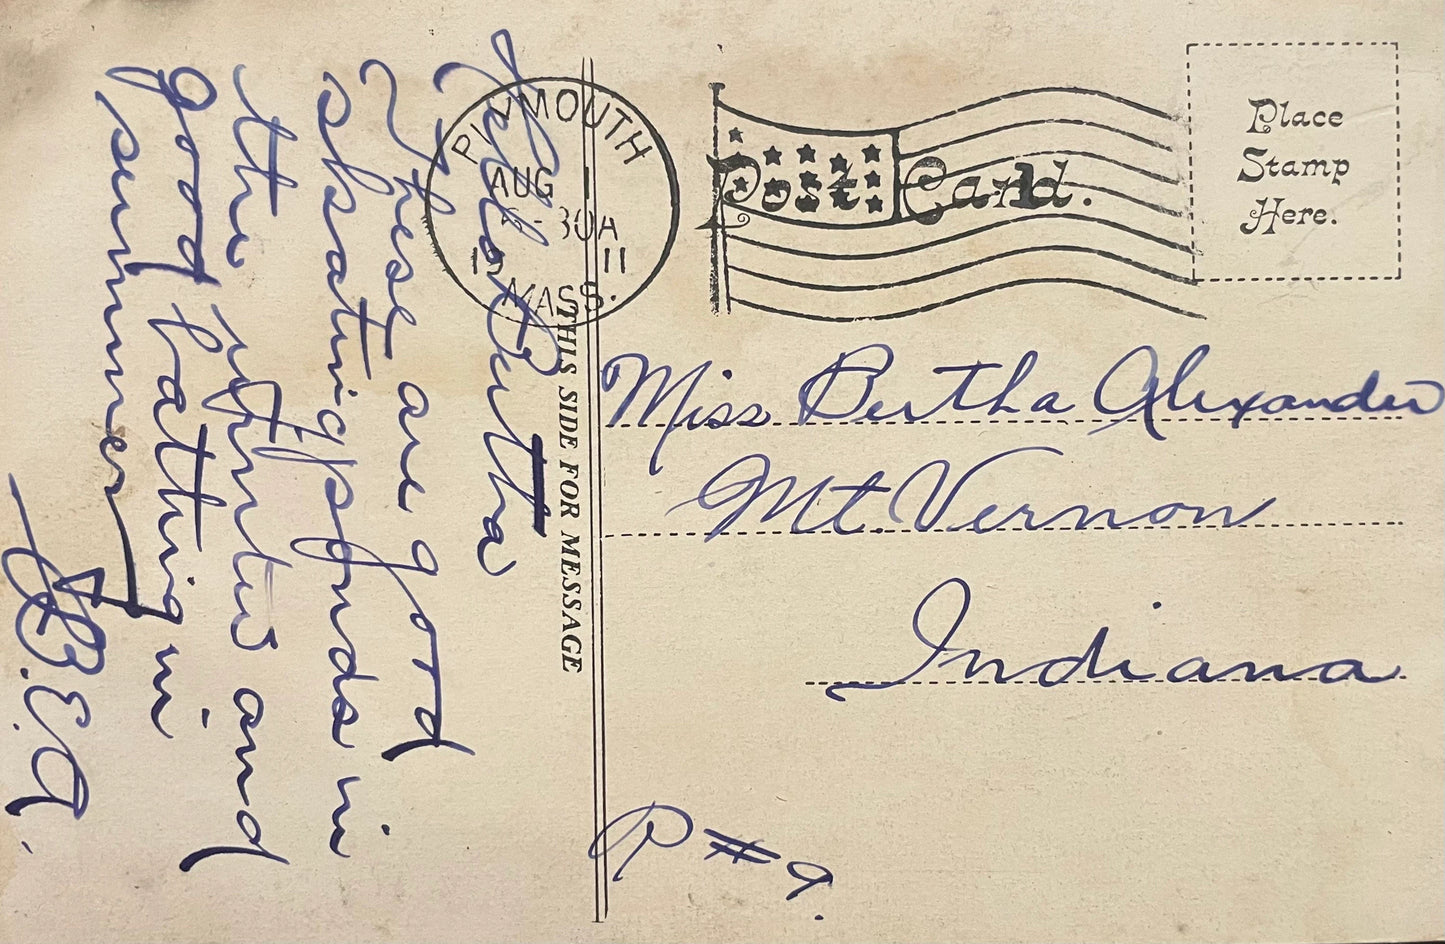 PLYMOUTH
AUG 1
30A
1911
MASS.
Post Card.
Place
Stamp
Here.
THIS SIDE FOR MESSAGE
Hello Bertha
These are good
skating ponds in
the winter and
good bathing in
summer
B.E.A.
Miss Bertha Alexander
Mt. Vernon
Indiana
R # 9.